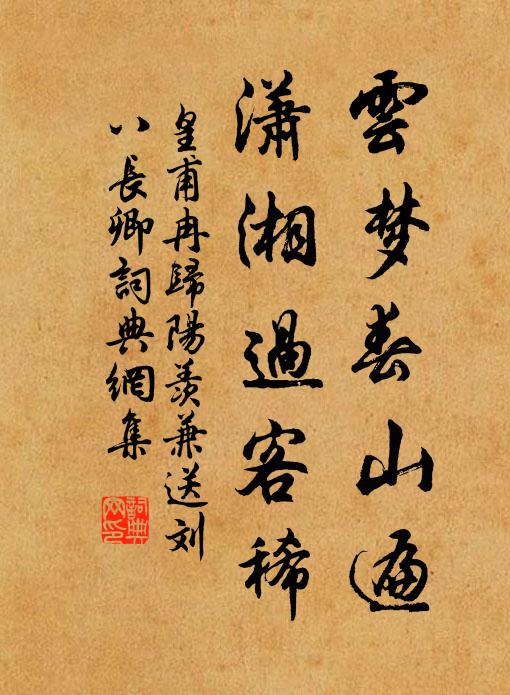 雲梦春山遍
瀟湘過客稀
皇甫冉歸陽羨兼送刘
八長卿詞典網集
詞典
网印